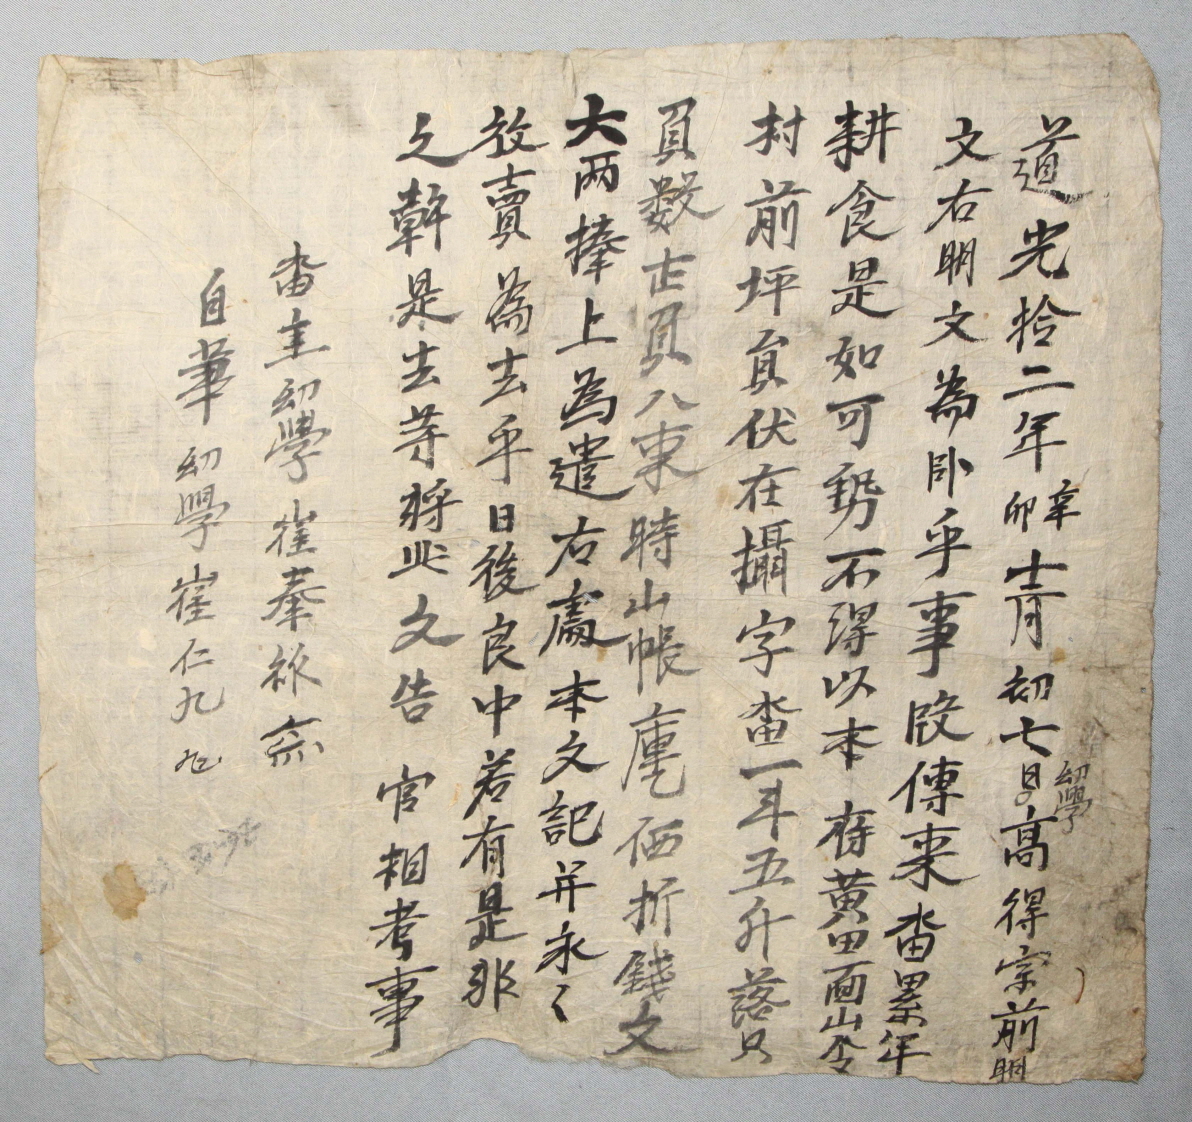 道光拾二年辛卯十二月初七日幼學高得宗前明
文右明文為臥乎事段傳來畓累年
耕食是如可勢不得以本府黃田面山伞
村前坪員伏在攝字畓一斗五升落只
負數七負八束時山帳庫乙価折錢文
大両捧上為遣右處本文記并永〻
放賣為去乎日後良中若有是非
之斡是去等將此文告 官相考事
畓主幼學崔奉
自筆幼學崔仁九